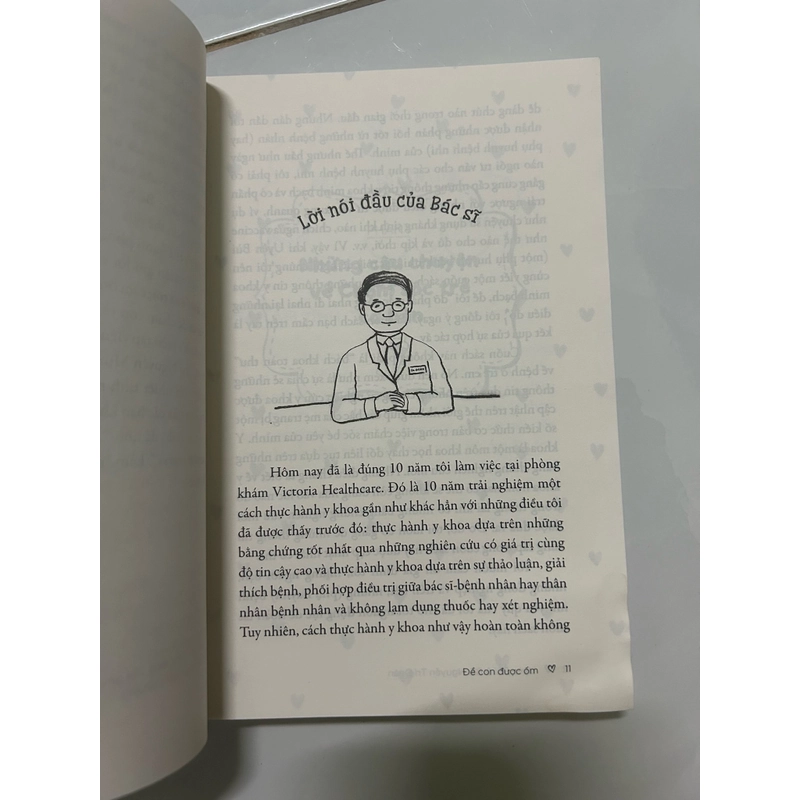 Lời nói đầu của Bác sĩ
Hôm nay đã là đúng 10 năm tôi làm việc tại phòng
khám Victoria Healthcare. Đó là 10 năm trải nghiệm một
cách thực hành y khoa gần như khác hẳn với những điều tôi
đã được thấy trước đó: thực hành y khoa dựa trên những
bằng chứng tốt nhất qua những nghiên cứu có giá trị cùng
độ tin cậy cao và thực hành y khoa dựa trên sự thảo luận, giải
thích bệnh, phối hợp điều trị giữa bác sĩ-bệnh nhân hay thân
nhân bệnh nhân và không lạm dụng thuốc hay xét nghiệm.
Tuy nhiên, cách thực hành y khoa như vậy hoàn toàn không
Để con được ốm 11